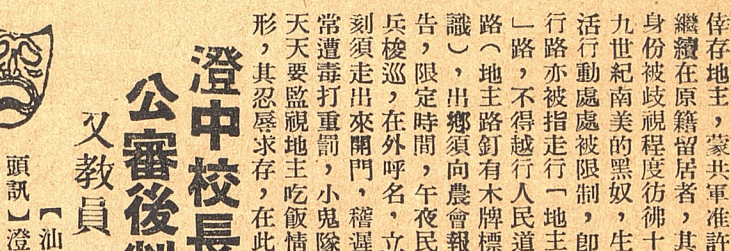 倖存地主，蒙共軍准許
繼續在原籍留居者，其
身份被歧視程度彷彿十
九世紀南美的黑奴，生
活行動處處被限制，卽
行路亦被指走行「地主
」路，不得越行人民道
路（地主路釘有木牌標
識），出鄉須向農會報
告，限定時間，午夜民
兵梭巡，在外呼名，立
刻須走出來開門，稽遲
常遭毒打重罰，小鬼隊
天天要監視地主吃飯情
形，其忍辱求存，在此
澄中校長
公審後
又教員
【汕
頭訊】澄